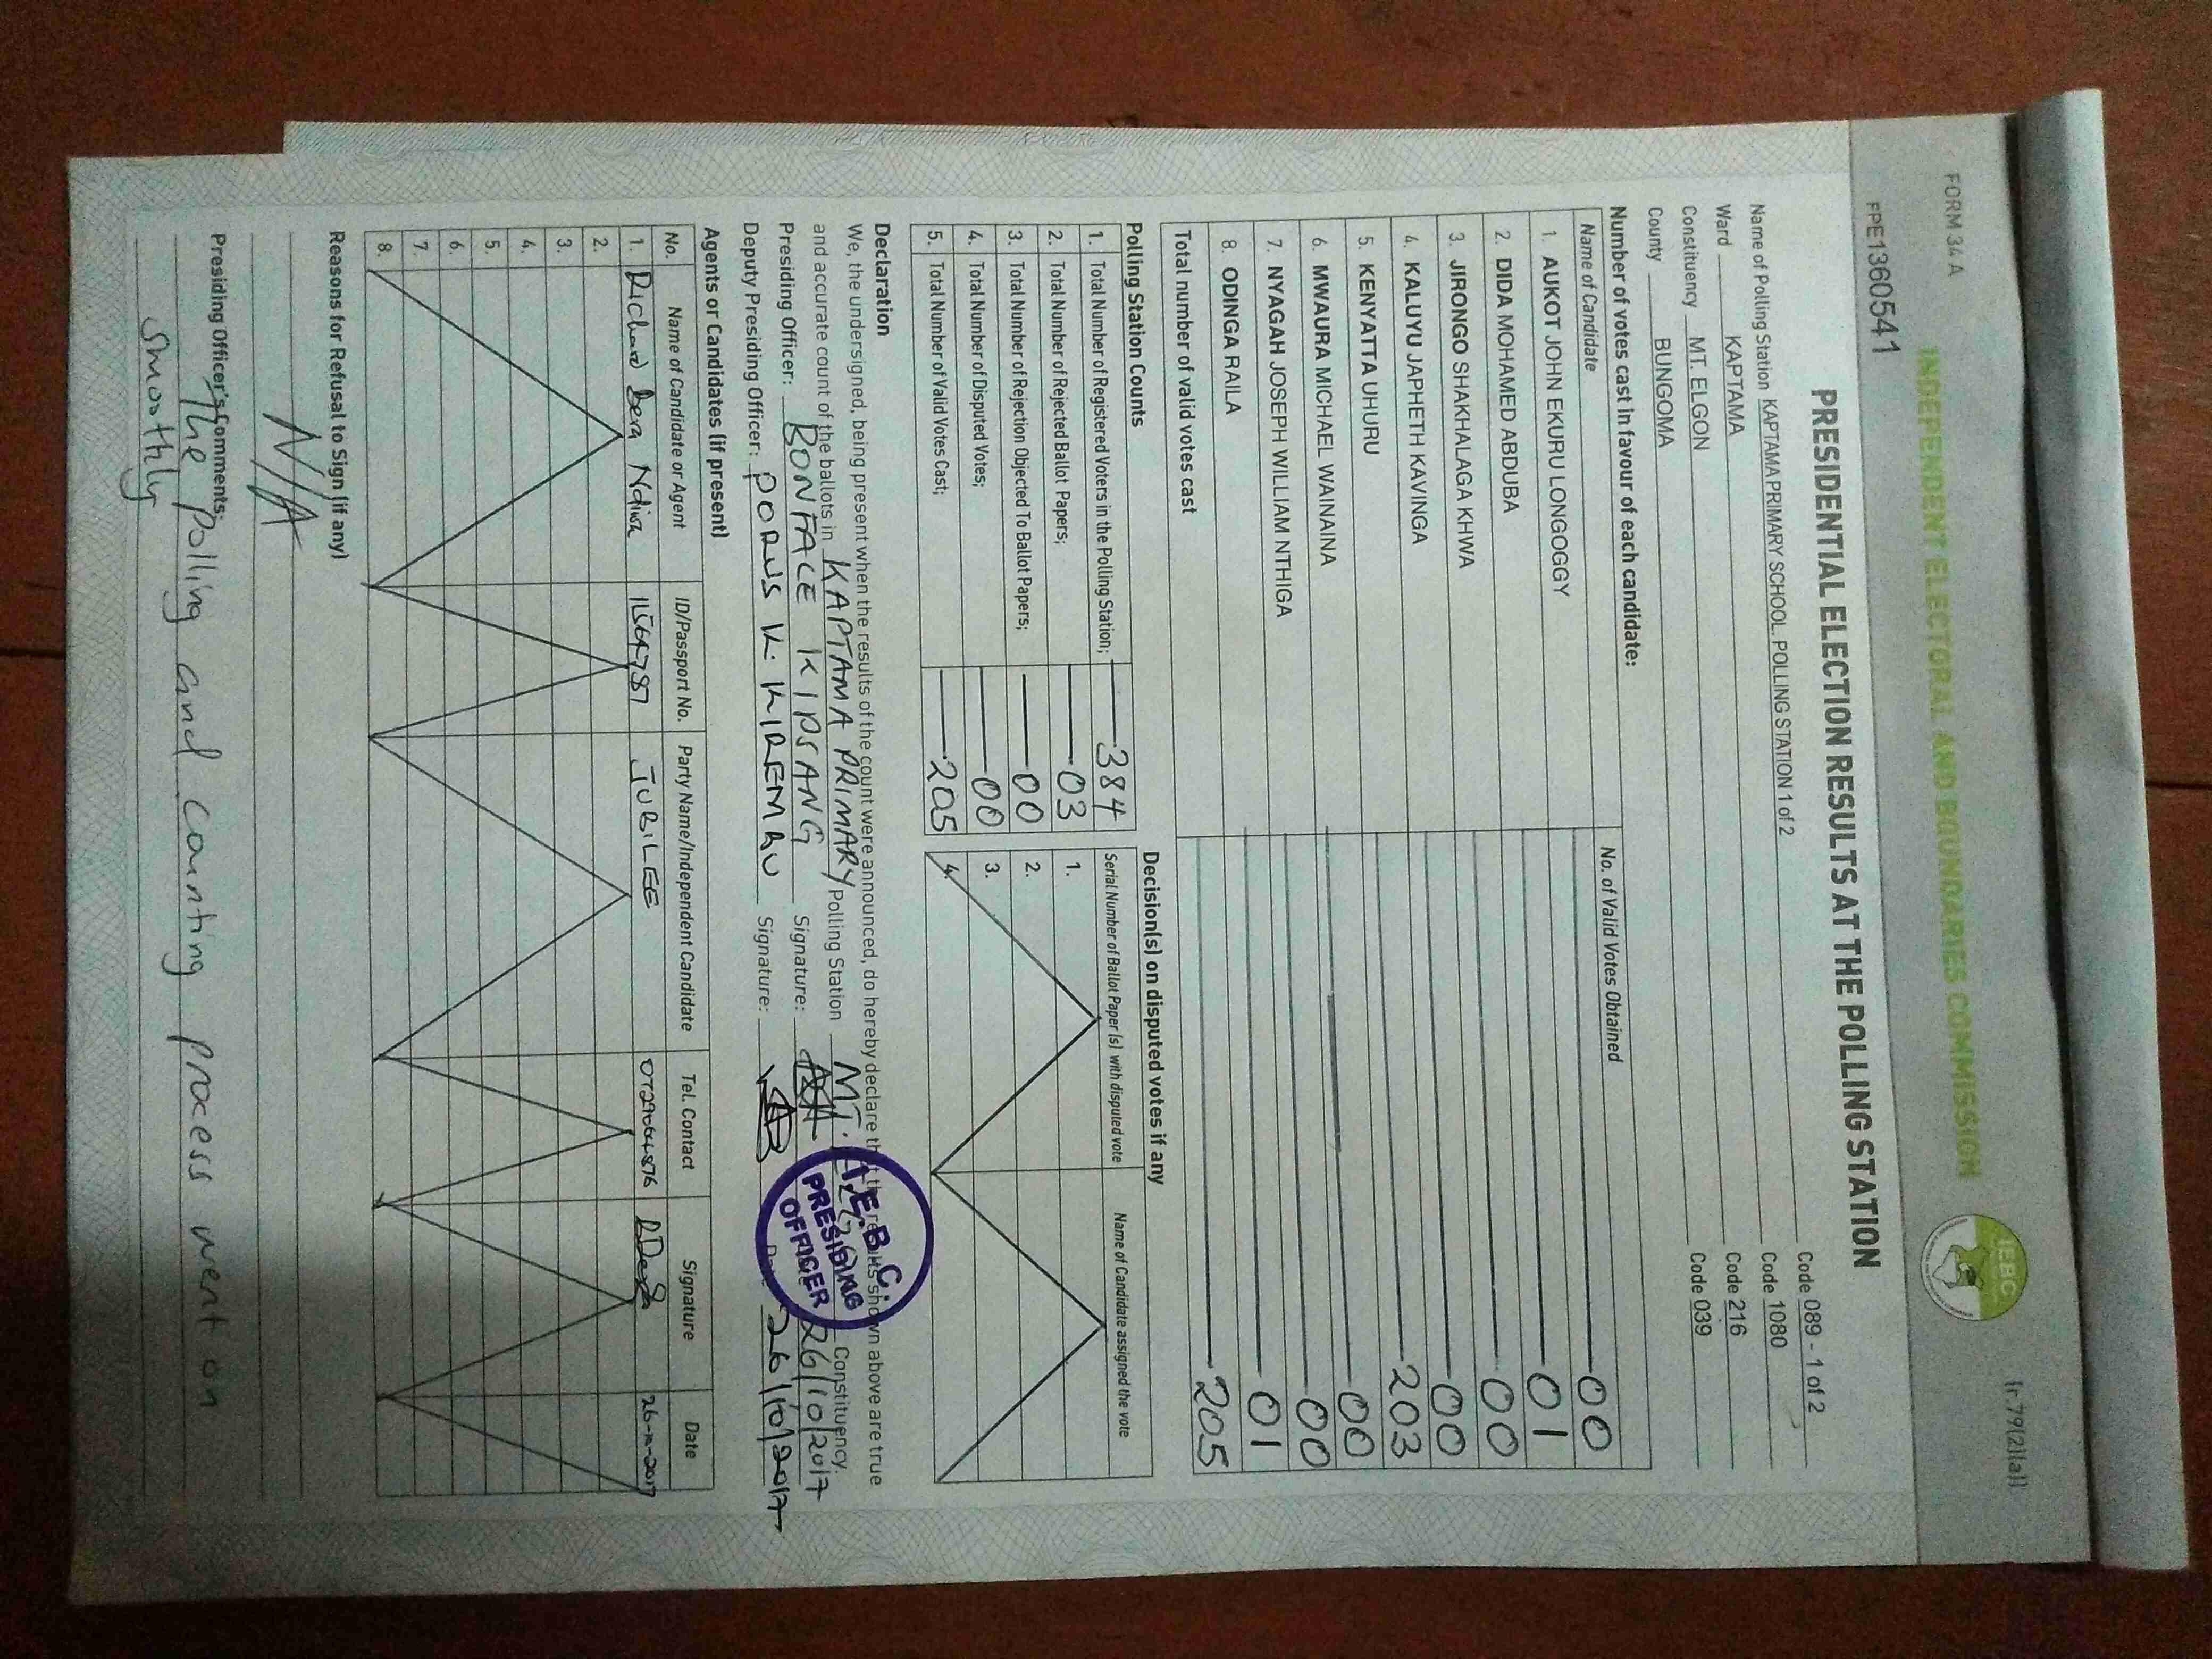 FORM 34 A
(r.79(2)(a))
INDEPENDENT ELECTORAL AND BOUNDARIES COMMISSION
IEBC
FPE1360541
PRESIDENTIAL ELECTION RESULTS AT THE POLLING STATION
Name of Polling Station KAPTAMA PRIMARY SCHOOL. POLLING STATION 1 of 2 Code 089 - 1 of 2
Ward KAPTAMA Code 1080
Constituency MT. ELGON Code 216
County BUNGOMA Code 039
Number of votes cast in favour of each candidate:
Name of Candidate No. of Valid Votes Obtained
1. AUKOT JOHN EKURU LONGOGGY 00
2. DIDA MOHAMED ABDUBA 01
3. JIRONGO SHAKHALAGA KHWA 00
4. KALUYU JAPHETH KAVINGA 00
5. KENYATTA UHURU 203
6. MWAURA MICHAEL WAINAINA 00
7. NYAGAH JOSEPH WILLIAM NTHIGA 00
8. ODINGA RAILA 01
Total number of valid votes cast 205
Polling Station Counts
1. Total Number of Registered Voters in the Polling Station; 384
2. Total Number of Rejected Ballot Papers; 03
3. Total Number of Rejection Objected To Ballot Papers; 00
4. Total Number of Disputed Votes; 00
5. Total Number of Valid Votes Cast; 205
Decision(s) on disputed votes if any
Serial Number of Ballot Paper (s) with disputed vote Name of Candidate assigned the vote
1.
2.
3.
4.
Declaration
We, the undersigned, being present when the results of the count were announced, do hereby declare that the results shown above are true
and accurate count of the ballots in KAPTAMA PRIMARY Polling Station MT. ELGON Constituency.
Presiding Officer: BONFACE KIPSANG Signature: 26/10/2017
Deputy Presiding Officer: PORUS K. KIREMBU Signature: Date 26/10/2017
I.E.B.C.
PRESIDING
OFFICER
Agents or Candidates (if present)
No. Name of Candidate or Agent ID/Passport No. Party Name/Independent Candidate Tel. Contact Signature Date
1. Richard Bera Ndiwa JUBILEE 26-10-2017
2.
3.
4.
5.
6.
7.
8.
Reasons for Refusal to Sign (if any)
N/A
Presiding Officer's Comments:
The polling and counting process went on
smoothly